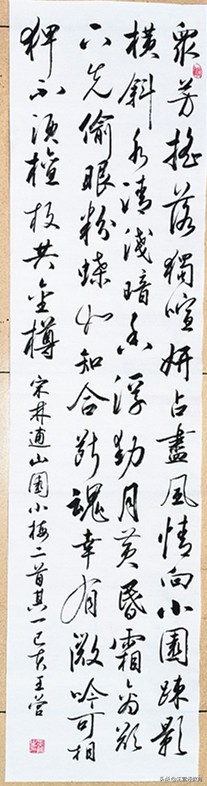 衆芳搖落獨喧妍占盡風情向小園疎影
橫斜水清淺暗香浮動月黃昏霜禽欲
下先偷眼粉蝶如知合斷魂幸有微吟可相
狎不須檀板共金樽 宋林逋山園小梅二首其一己亥王营